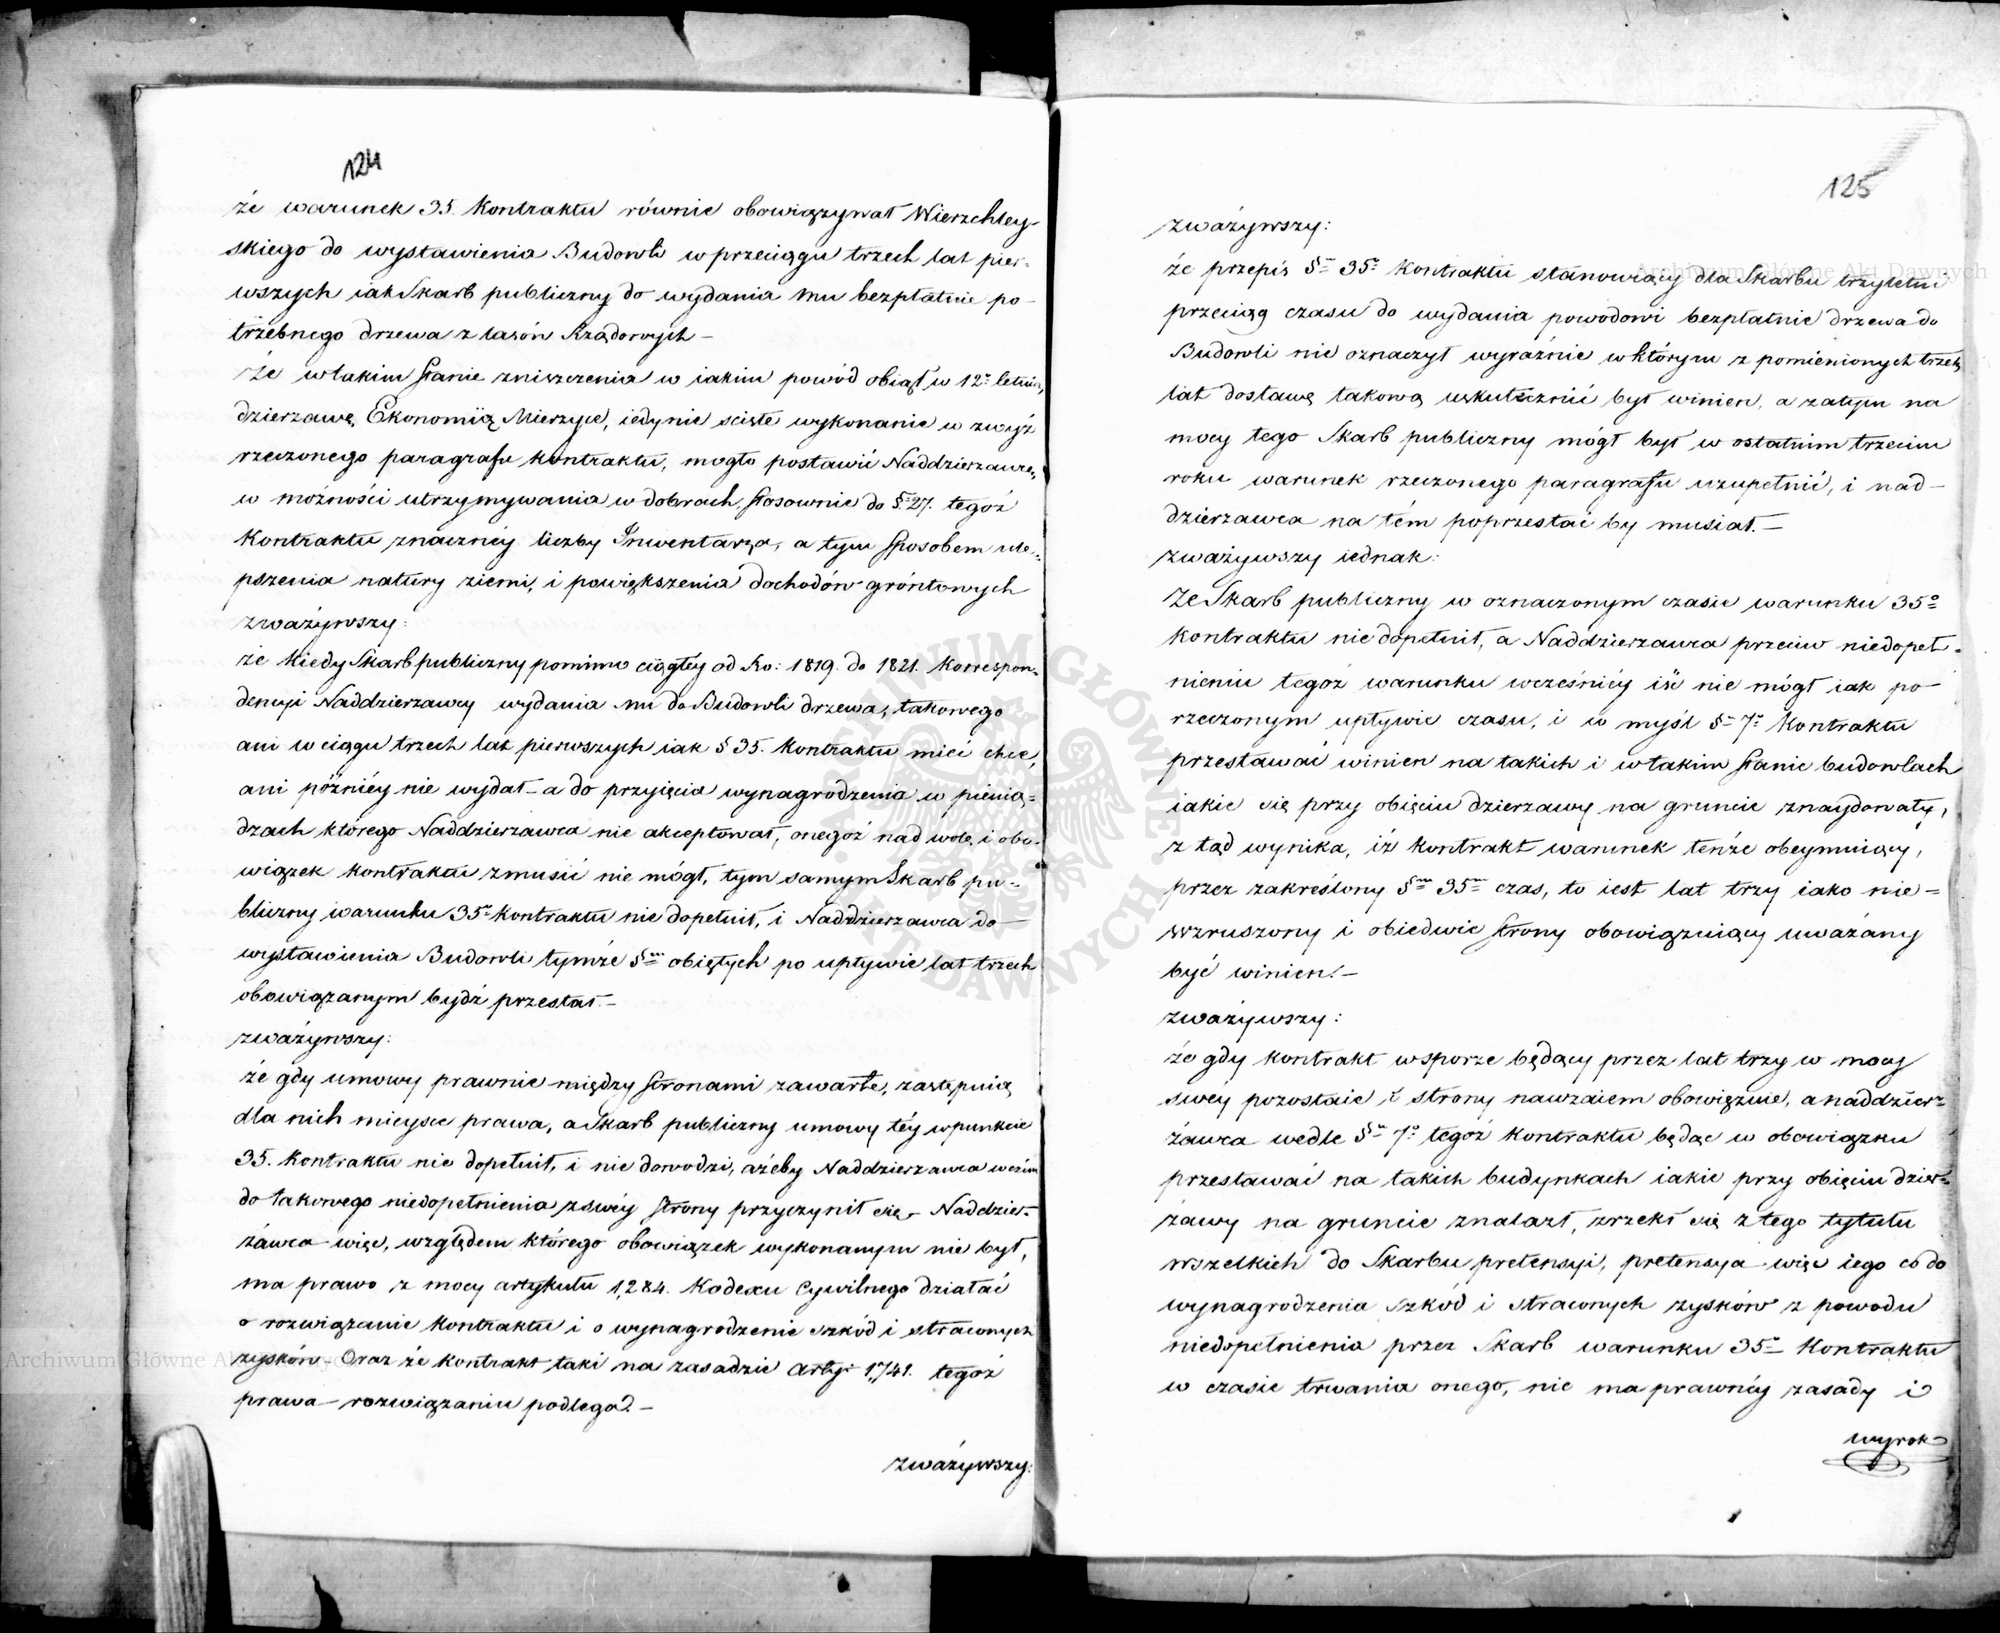 124
że warunek 35. Kontraktu równie obowiązywał Wierzchley-
skiego do wystawienia Budowli w przeciągu trzech lat pier-
wszych iak Skarb publiczny do wydania mu bezpłatnie po-
trzebnego drzewa z lasów Rządowych –
że w takim stanie zniszczenia w iakim powód obiął w 12º letnią,
dzierzawę Ekonomiią Mierzyce, iedynie scisłe wykonanie w zwyż
rzeczonego paragrafu kontraktu, mogło postawić Naddzierzawcę,
w możności utrzymywania w dobrach stosownie do §. 27. tegoż
Kontraktu znaczney liczby Inwentarza, a tym sposobem ule-
pszenia natury ziemi, i powiększenia dochodów gróntowych
zważywszy:
że kiedy Skarb publiczny pomimo ciągłey od Ro: 1819. do 1821. korrespon-
dencyi Naddzierzawcy wydania mu do Budowli drzewa, takowego
ani w ciągu trzech lat pierwszych iak § 35. Kontraktu mieć chce,
ani późniéy nie wydał – a do przyięcia wynagrodzenia w pienią-
dzach którego Naddzierzawca nie akceptował, onegoż nad wolę i obo-
wiązek kontraktu zmusić nie mógł, tym samym Skarb pu-
bliczny warunku 35º kontraktu nie dopełnił, i Naddzierzawca do
wystawienia Budowli tymże §em obiętych po upływie lat trzech
obowiązanym bydź przestał. –
zważywszy:
że gdy umowy prawnie między stronami zawarte, zastępuią
dla nich mieysce prawa, a Skarb publiczny umowy téy w punkcie
35. Kontraktu nie dopełnił, i nie dowodzi, ażeby Naddzierzawca w czém
do takowego niedopełnienia z swéy strony przyczynił się – Naddzier-
żawca więc, względem którego obowiązek wykonanym nie był,
ma prawo z mocy artykułu 1,284. Kodexu Cywilnego działać
o rozwiązanie kontraktu i o wynagrodzenie szkód i straconych
zysków – Oraz że kontrakt taki na zasadzie Arty: 1,741. tegoż
prawa – rozwiązaniu podlega. –
zważywszy:
125
zważywszy:
że przepis §u 35º Kontraktu stanowiący dla Skarbu trzyletni
przeciąg czasu do wydania powodowi bezpłatnie drzewa do
Budowli nie oznaczył wyraźnie w którym z pomienionych trzech
lat dostawę takową uskutecznić był winien, a zatym na
mocy tego Skarb publiczny mógł był w ostatnim trzecim
roku warunek rzeczonego paragrafu uzupełnić, i nad-
dzierzawca na tém poprzestać by musiał. –
zważywszy iednak:
Że Skarb publiczny w oznaczonym czasie warunku 35º
kontraktu nie dopełnił, a Naddzierzawca przeciw niedopeł-
nieniu tegoż warunku wcześniéy iść nie mógł iak po
rzeczonym upływie czasu, i w myśl §u 7º Kontraktu
przestawać winien na takich i w takim stanie budowlach
iakie się przy obięciu dzierzawy na gruncie znaydowały,
z tąd wynika, iż kontrakt warunek tenże obeymuiący,
przez zakreślony §em 35em czas, to iest lat trzy iako nie-
wzruszony i obiedwie strony obowiązuiący uważany
być winien. –
zważywszy:
że gdy kontrakt w sporze będący przez lat trzy w mocy
swey pozostaie i strony nawzaiem obowiązuie, a naddzier-
żawca wedle §u 7º tegoż kontraktu będąc w obowiązku
przestawać na takich budynkach iakie przy obięciu dzier-
żawy na gruncie znalazł, zrzekł się z tego tytułu
wszelkich do Skarbu pretensyi, pretensya więc iego co do
wynagrodzenia szkód i straconych zysków z powodu
niedopełnienia przez Skarb warunku 35º Kontraktu
w czasie trwania onego, nie ma prawnéy zasady i
wyrok
Archiwum Główne Akt Dawnych